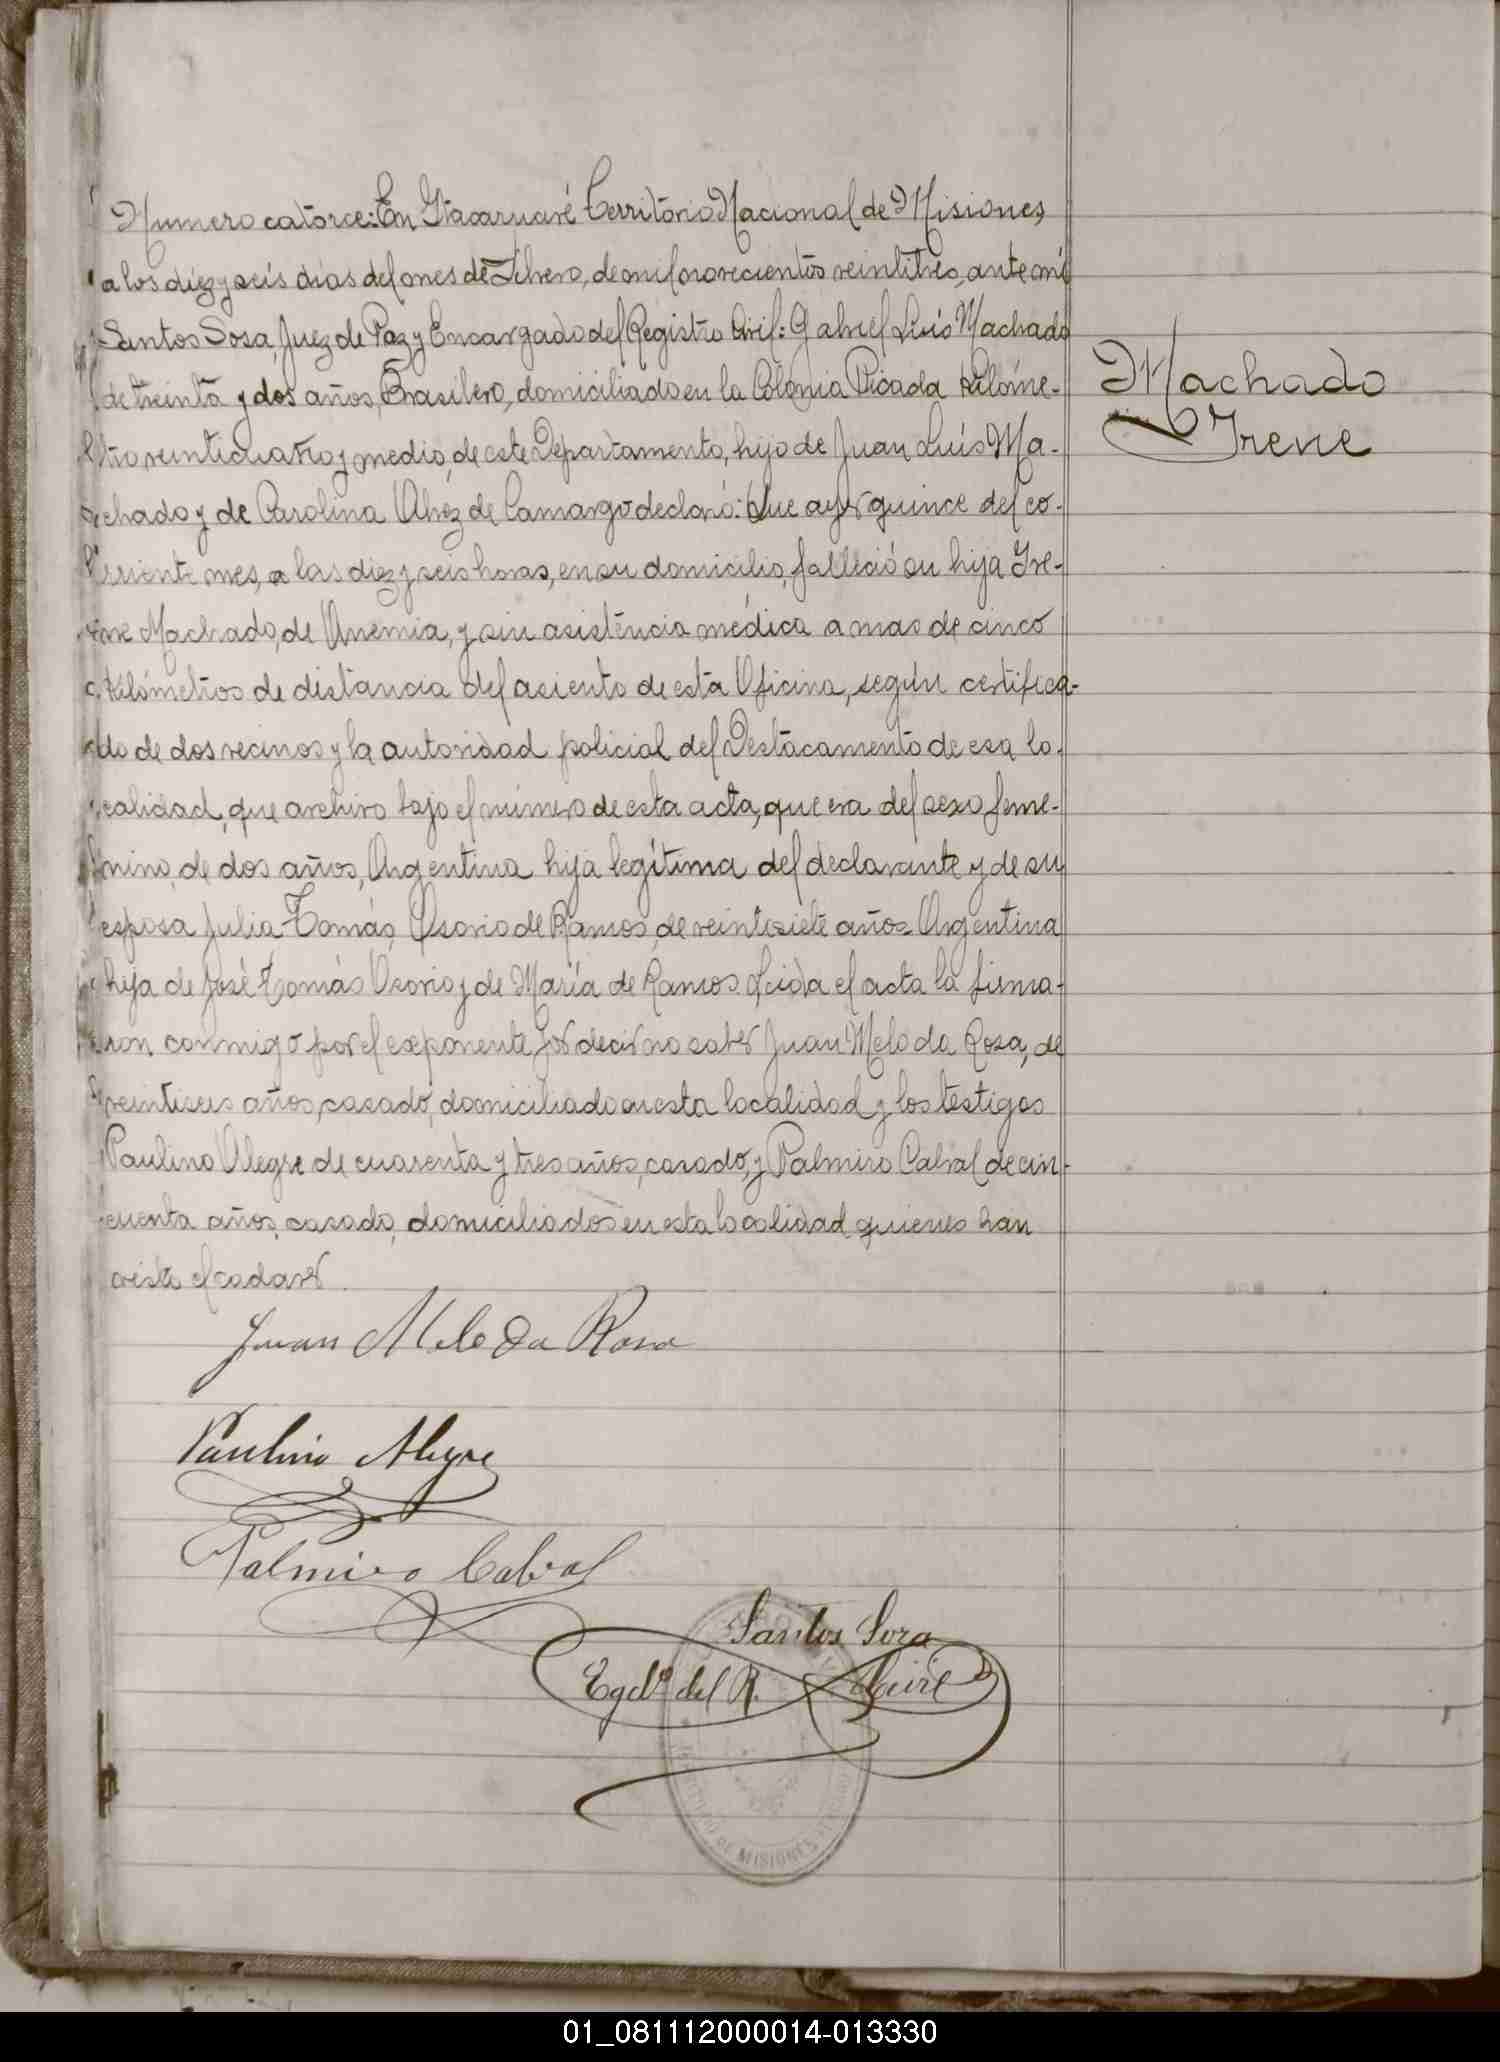 Numero catorce: En Itacaruaré Territorio Nacional de Misiones,
a los diez y seis dias del mes de Febrero, de mil novecientos veintitres, ante mi
Santos Sosa, Juez de Paz y Encargado del Registro Civil: Gabriel Luis Machado
de treinta y dos años, Brasilero, domiciliado en la Colonia Picada Kilóme-
tro veinticuatro y medio, de este Departamento, hijo de Juan Luis Ma-
chado y de Carolina de Camargo declaró: Que ayer quince del co-
rriente mes, a las diez y seis horas, en su domicilio, falleció su hija Ire-
ne Machado, de Anemia, y sin asistencia médica a mas de cinco
Kilómetros de distancia del asiento de esta Oficina, según certifica-
do de dos vecinos y la autoridad policial del Destacamento de esa lo-
calidad, que archivo bajo el número de esta acta, que era del sexo feme-
nino, de dos años, Argentina hija legítima del declarante y de su
esposa Julia Tomás Osorio de Ramos, de veintesiete años Argentina
hija de José Tomás Osorio y de María de Ramos. Leida el acta la firma-
ron conmigo por el exponente por decir no saber Juan Melo da Rosa, de
veintiseis años, casado, domiciliado en esta localidad y los testigos
Paulino Alegre de cuarenta y tres años, casado, y Palmiro Cabral de cin-
cuenta años, casado, domiciliados en esta localidad quienes han
visto el cadaver.
Machado
Irene
Juan Melo da Rosa
Paulino Alegre
Palmiro Cabral
Santos Sosa
Egdo. del R. Civil
DE MISIONES
01_081112000014-013330